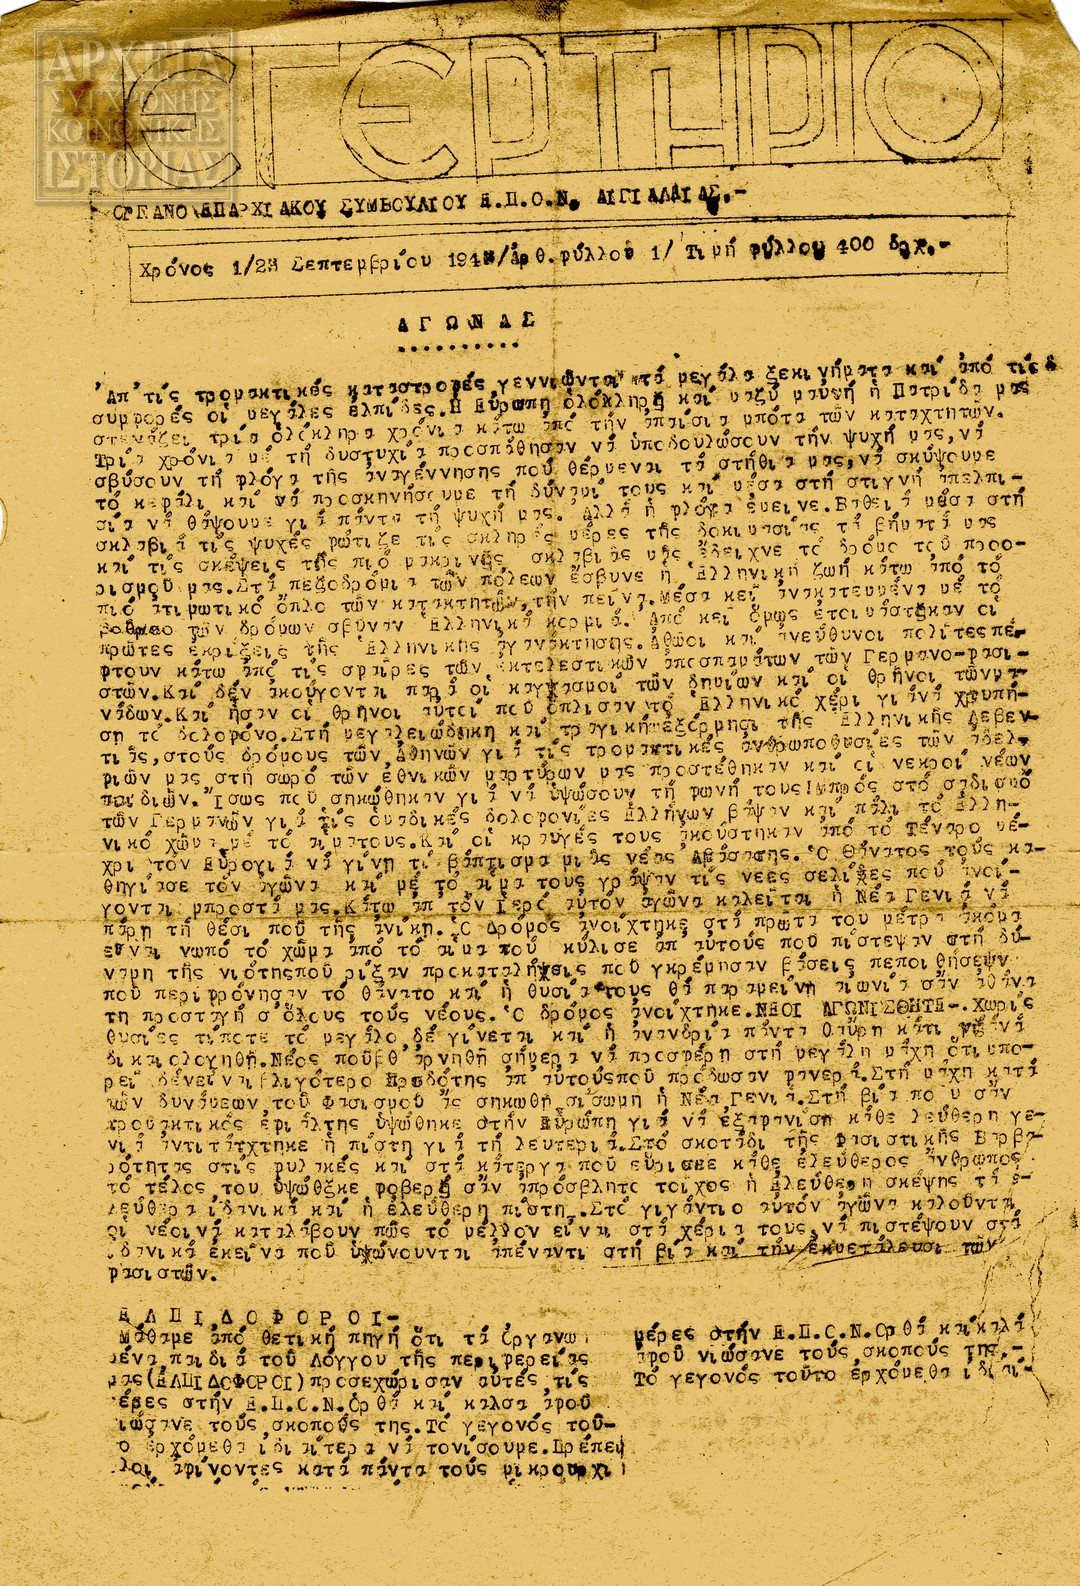 ΑΡΧΕΙΑ
ΣΥΓΧΡΟΝΗΣ
ΚΟΙΝΩΝΙΚΗΣ
ΙΣΤΟΡΙΑΣ
ΕΓΕΡΤΗΡΙΟ
ΟΡΓΑΝΟ ΕΠΑΡΧΙΑΚΟΥ ΣΥΜΒΟΥΛΙΟΥ Ε.Π.Ο.Ν. ΑΙΓΙΑΛΕΙΑΣ.-
Χρόνος 1/23 Σεπτεμβρίου /Αρθ.φύλλου 1/ Τιμή φύλλου 400 δρχ.-
ΑΓΩΝΑΣ
Ἀπ' τίς τρομακτικές καταστροφές γεννιῶνται τά μεγάλα ξεκινήματα καί ἀπό τίς
συμφορές οἱ μεγάλες ἐλπίδες. Ἡ Εὐρώπη ὁλόκληρη καί μαζύ μαὐνή ἡ Πατρίδα μας
στενάζει τρία ὁλόκληρα χρόνια κάτω ἀπό τήν ἀπαίσια μπότα τῶν καταχτητῶν.
Τρία χρόνια μέ τή δυστυχία προσπάθησαν νά ὑποδουλώσουν τήν ψυχή μας, νά
σβύσουν τή φλόγα τῆς ἀναγέννησης πού θέρμεναι τά στήθια μας, νά σκύψουμε
τό κεφάλι καί νά προσκηνήσουμε τή δύναμί τους καί μέσα στή στιγνή ἀπελπι-
σία νά θάψουμε γιά πάντα τή ψυχή μας. Ἀλλά ἡ φλόγα ἔμεινε. Βαθειά μέσα στή
σκλαβιά τίς ψυχές φώτιζε τίς σκληρές μέρες τῆς δοκιμασίας τά βήματά μας
καί τίς σκέψεις τῆς πιό μακρινῆς σκλαβιᾶς μᾶς ἔδειχνε τό δρόμο τοῦ προο-
ρισμοῦ μας. Στά πεζοδρόμια τῶν πόλεων ἔσβυνε ἡ Ἑλληνική ζωή κάτω ἀπό τό
πιό ἄτιμωτικό ὅπλο τῶν κατακτητῶν, τήν πείνα. Μέσα κεῖ ἀνακατευμένα μέ τό
τῶν δρόμων σβύναν Ἑλληνικά κορμιά. Ἀπό κεῖ ὅμως ἑτοιμάστηκαν οἱ
πρῶτες ἐκρίξεις τῆς Ἑλληνικῆς ἀγανάκτησης. Ἀθῶοι καί ἀνεύθυνοι πολῖτες πέ-
φτουν κάτω ἀπό τίς σφαῖρες τῶν ἐκτελεστικῶν ἀποσπαμάτων τῶν Γερμανο-φασι-
στῶν. Καί δέν ἀκούγονται παρά οἱ καγχασμοί τῶν δημίων καί οἱ θρῆνοι τῶν μα-
νάδων. Καί ἦσαν οἱ θρῆνοι αὐτοί πού ὅπλισαν τό Ἑλληνικό χέρι γιά νά χτυπή-
ση τό δολοφόνο. Στή μεγαλειώδικη καί τραγική ἐξόρμησι τῆς Ἑλληνικῆς Λεβεν-
τιᾶς, στούς δρόμους τῶν Ἀθηνῶν γιά τίς τρομακτικές ἀνθρωποθυσίες τῶν ἀδελ-
φιῶν μας στή σωρό τῶν ἐθνικῶν μαρτύρων μας προστέθηκαν καί οἱ νεκροί νέων
παιδιῶν. Ἴσως πού σηκώθηκαν γιά νά ὑψώσουν τή φωνή τους! Μπρός στό σαδισμό
τῶν Γερμανῶν γιά τίς ὁμαδικές δολοφονίες Ἑλλήνων βάψαν καί πάλι τό Ἑλλη-
νικό χῶμα μέ τό αἷμα τους. Καί οἱ κραυγές τους ἀκούστηκαν ἀπό τό Τέναρο μέ-
χρι τόν Εὖρο γιά νά γίνη τό βάπτισμα μιᾶς νέας Ἀνάστασης. Ὁ θάνατος τούς κα-
θηγίασε τόν ἀγῶνα καί μέ τό αἷμα τους γράψαν τίς νέες σελίδες πού ἀνοί-
γονται μπροστά μας. Κάτω ἀπ' τόν Γερό αὐτόν ἀγῶνα καλεῖται ἡ Νέα Γενιά νά
πάρη τή θέσι πού τῆς ἀνίκη. Ὁ Δρόμος ἀνοίχτηκε στά πρῶτα του μέτρα ἀκόμα
εἶναι νωπό τό χῶμα ἀπό τό αἷμα πού κύλισε ἀπ' αὐτούς πού πίστεψαν στή δύ-
ναμη τῆς νιότης πού ρίξαν προκαταλήψεις πού γκρέμησαν βάσεις πεποιθήσεων
πού περιφρόνησαν τό θάνατο καί ἡ θυσία τους θά παραμείνη αἰωνία σάν ἀθάνα
τη προσταγή σ' ὅλους τούς νέους. Ὁ δρόμος ἀνοίχτηκε. ΝΕΟΙ ΑΓΩΝΙΣΘΗΤΕ-. Χωρίς
θυσίες τίποτε τό μεγάλο δέ γίνεται καί ἡ ἀνανδρία πάντα θαὔρη κάτι γιά νά
δικαιολογηθῆ. Νέος πού θ' ἀρνηθῆ σήμερα νά προσφέρη στή μεγάλη μάχη ὅτι μπο-
ρεῖ δέν εἶναι λιγότερο Προδότης ἀπ' αὐτούς πού πρόδωσαν φανερά. Στή μάχη κατά
τῶν δυνάμεων τοῦ Φασισμοῦ ἄς σηκωθῆ σύσωμη ἡ Νέα Γενιά. Στή βία πού σάν
τρομακτικός ἐφιάλτης ὑψώθηκε στήν Εὐρώπη γιά νά ἐξαφανίση κάθε λεύθερη γε-
νιά ἀντιτάχτηκε ἡ πίστη γιά τή λευτεριά. Στό σκοτάδι τῆς Φασιστικῆς Βαρβα-
ρότητας στίς φυλακές καί στά κάτεργα πού εὕρισκε κάθε ἐλεύθερος ἄνθρωπος
τό τέλος του ὑψώθηκε φοβερή σάν ἀπρόσβλητο τοῖχος ἡ Ἐλεύθερη σκέψης τά ἐ-
λεύθερα ἰδανικά καί ἡ ἐλεύθερη πίστη. Στό γιγάντιο αὐτόν ἀγῶνα καλοῦνται
οἱ νέοι νά καταλάβουν πῶς τό μέλλον εἶναι στά χέρια τους νά πιστέψουν στά
ἰδανικά ἐκεῖνα πού ὑψώνουνται ἀπέναντι στή βία καί τήν ἐκμετάλευσι τῶν
φασιστῶν.
ΕΛΠΙΔΟΦΟΡΟΙ-
Μάθαμε ἀπό θετική πηγή ὅτι τά ὀργανω
μένα παιδιά τοῦ Λόγγου τῆς περιφερείας
μας (ΕΛΠΙΔΟΦΟΡΟΙ) προσεχώρισαν αὐτές τίς
μέρες στήν Ε.Π.Ο.Ν. Ὀρθά καί καλσα ἀφοῦ
νιώσανε τούς σκοπούς της. Τό γεγονός τοῦ-
το ἐρχόμεθα ἰδιαίτερα νά τονίσουμε. Πρέπει
ὅλοι ἀφίνοντες κατά πάντα τούς μικροαρχι
μέρες στήν Ε.Π.Ο.Ν. Ὀρθά καί καλά
ἀφοῦ νιώσανε τούς σκοπούς της.-
Τό γεγονός τοῦτο ἐρχόμεθα ἰδιαί-